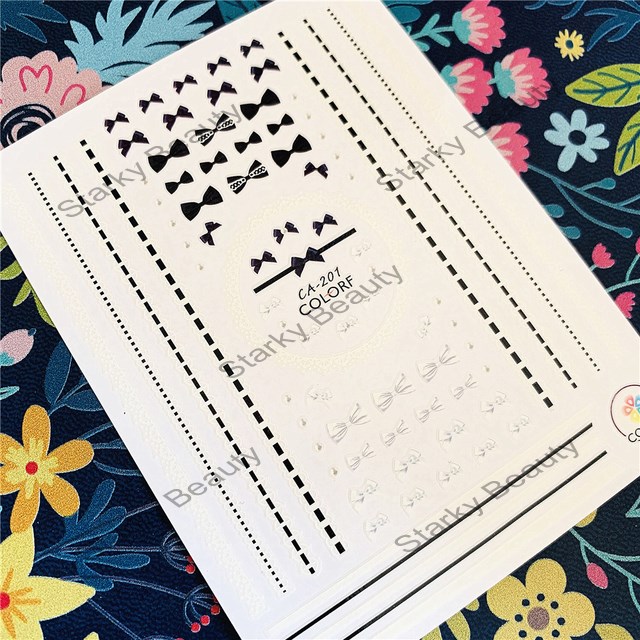 Starky Beauty
Starky Beauty
CA-201
COLORF
Starky Beauty
Beauty
Starky Beauty
Starky Beauty
CO